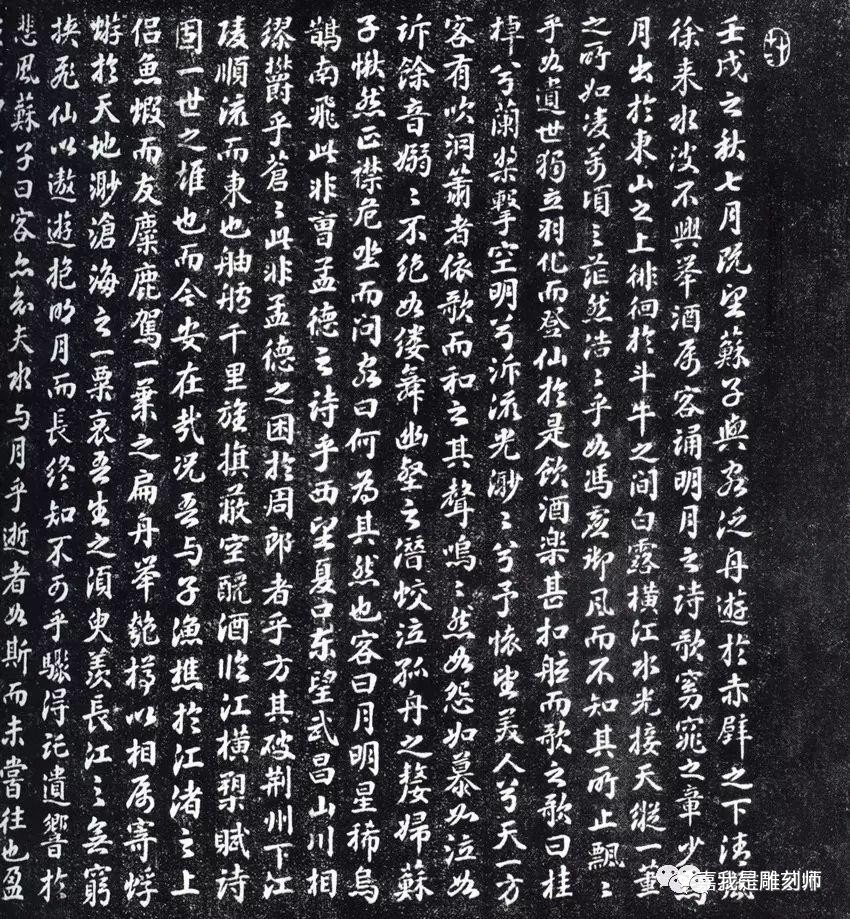 壬戌之秋七月既望蘇子與客泛舟遊於赤壁之下清風
徐来水波不興舉酒属客誦明月之诗歌窈窕之章少焉
月出於東山之上徘徊於斗牛之間白露横江水光接天縱一葦
之所如凌萬頃之茫然浩〻乎如馮虚御風而不知其所止飄〻
乎如遺世獨立羽化而登仙於是飲酒樂甚扣舷而歌之歌曰桂
棹兮蘭槳擊空明兮泝流光渺〻兮予懷望美人兮天一方
客有吹洞簫者依歌而和之其聲嗚〻然如怨如慕如泣如
訴餘音嫋〻不絕如缕舞幽壑之潛蛟泣孤舟之嫠婦蘇
子愀然正襟危坐而问客曰何為其然也客曰月明星稀烏
鵲南飛此非曹孟德之詩乎西望夏口东望武昌山川相
繆鬱乎蒼〻此非孟德之困於周郎者乎方其破荆州下江
陵順流而東也舳艫千里旌旗蔽空釃酒临江横槊賦诗
固一世之雄也而今安在哉况吾与子漁樵於江渚之上
侣魚蝦而友麋鹿駕一葉之扁舟舉匏樽以相属寄蜉
蝣於天地渺滄海之一粟哀吾生之須臾羡長江之無窮
挾飛仙以遨遊抱明月而長終知不可乎驟得託遺響於
悲風蘇子曰客亦知夫水与月乎逝者如斯而未嘗往也盈
嘉我是雕刻师